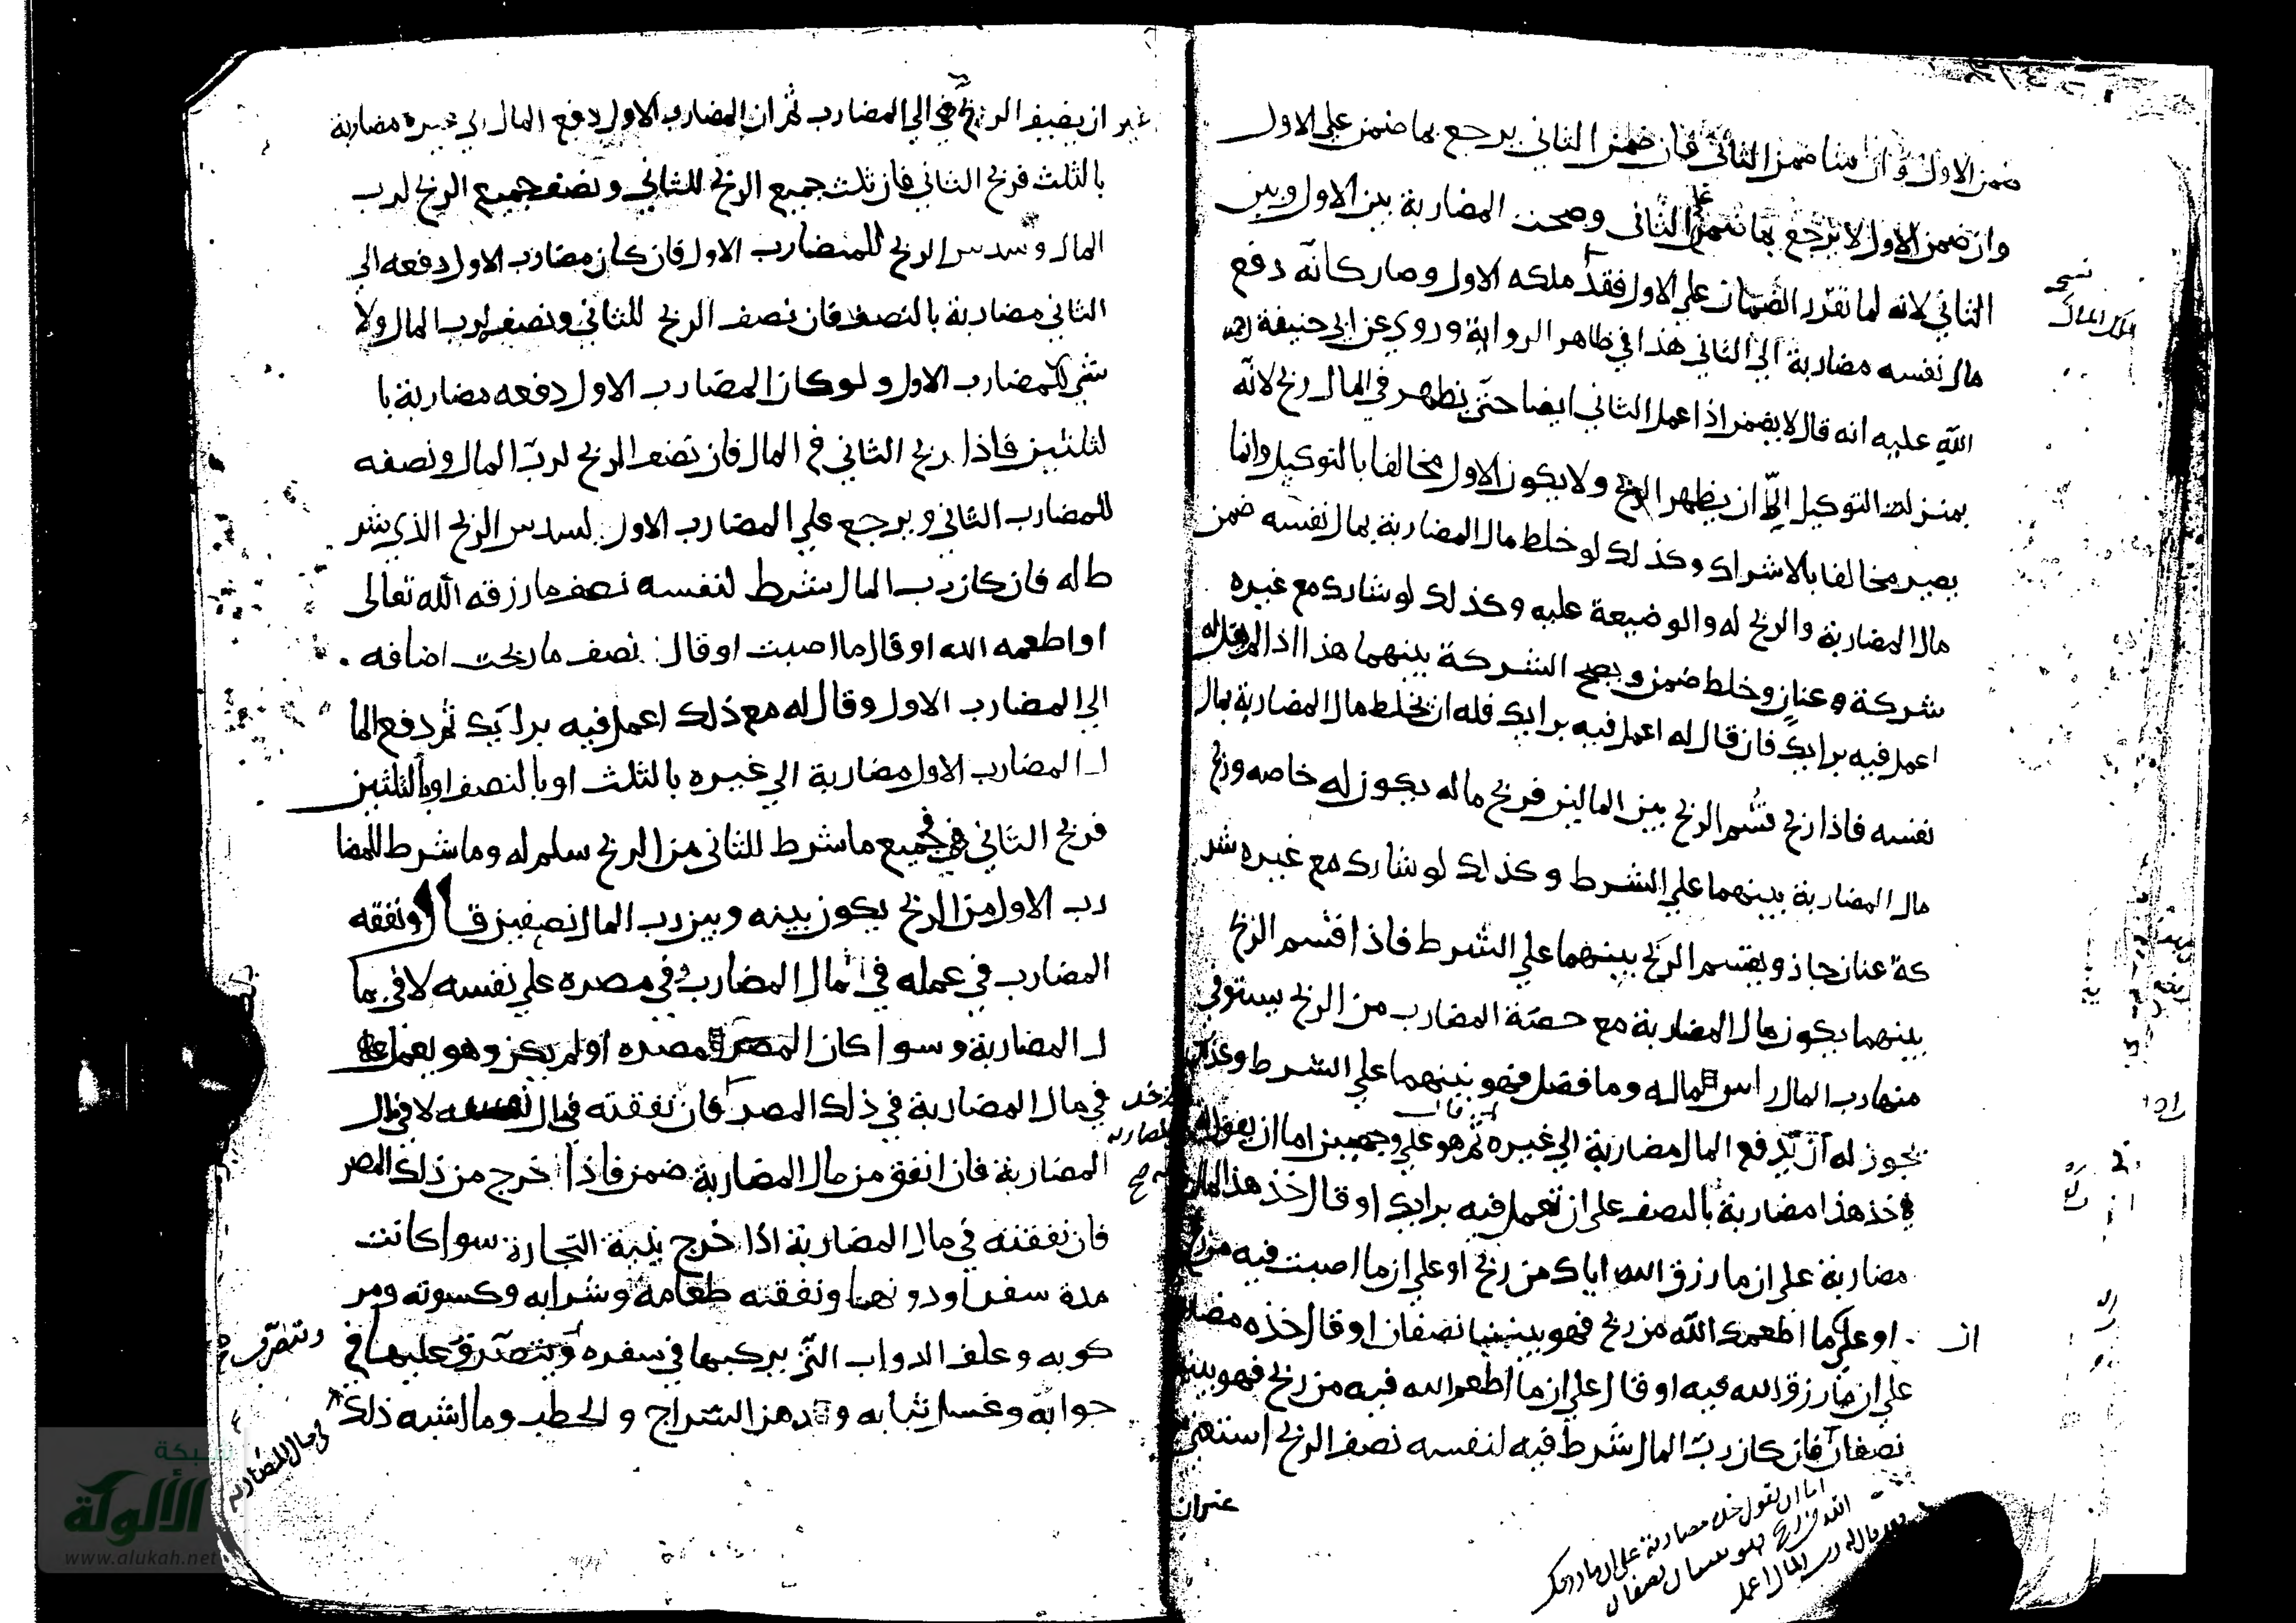 ضمن الاول وان شا ضمن الثاني فان ضمن الثاني يرجع بما ضمن علي الاول
وان ضمن الاول لا يرجع بما ضمن علي الثاني وصحت المضاربة بين الاول وبين
الثاني لانه لما تقرر الضمان علي الاول فقد ملكه الاول وصار كانه دفع
مال نفسه مضاربة الي الثاني هذا في ظاهر الرواية وروي عن ابي حنيفة رحمة
الله عليه انه قال لا يضمن اذا عمل الثاني ايضا حتي يظهر في المال ربح لانه
بمنزلة التوكيل الا ان يظهر الربح ولا يكون الاول مخالفا بالتوكيل وانما
يصير مخالفا بالاشراك وكذلك لو خلط مال المضاربة بمال نفسه ضمن
مال المضاربة والربح له والوضيعة عليه وكذلك لو شارك مع غيره
شركة وعنان وخلط ضمن ويصح الشركة بينهما هذا اذا لم يقل له
اعمل فيه برايك فان قال له اعمل فيه برايك فله ان يخلط مال المضاربة بمال
نفسه فاذا ربح قسم الربح بين المالين فربح ماله يكون له خاصه وربح
مال المضاربة بينهما علي الشرط وكذلك لو شارك مع غيره شر
كة عنان جاز ويقتسم الربح بينهما علي الشرط فاذا اقتسم الربح
بينهما يكون مال المضاربة مع حصة المضارب من الربح يستوفي
منها رب المال راس ماله وما فضل فهو بينهما علي الشرط وكذلك
يجوز له ان يدفع المال مضاربة الي غيره ثم هو علي وجهين اما ان يقول له
خذ هذا مضاربة بالنصف علي ان تعمل فيه برايك او قال خذ هذا المال
مضاربة علي ان ما رزق الله اياك من ربح او علي ان ما اصبت فيه من ربح
او علي ان ما اطعمك الله من ربح فهو بيننا نصفان او قال خذه مضاربة
علي ان ما رزق الله فيه او قال علي ان ما اطعم الله فيه من ربح فهو بيننا
نصفان فان كان رب المال شرط فيه لنفسه نصف الربح
اما ان يقول خذه مضاربة علي ان ما رزقك
الله من ربح فهو بيننا نصفان
قال له رب المال اعمل
غير ان
غير ان يضيف الربح الي المضارب ثم ان المضارب الاول دفع المال الي غيره مضاربة
بالثلث فربح الثاني فان ثلث جميع الربح للثاني ونصف جميع الربح لرب
المال وسدس الربح للمضارب الاول فان كان مضارب الاول دفعه الي
الثاني مضاربة بالنصف فان نصف الربح للثاني ونصف لرب المال ولا
شي للمضارب الاول ولو كان المضارب الاول دفعه مضاربة با
لثلثين فاذا ربح الثاني في المال فان نصف الربح لرب المال ونصفه
للمضارب الثاني ويرجع علي المضارب الاول بسدس الربح الذي شر
ط له فان كان رب المال شرط لنفسه نصف ما رزقه الله تعالي
او اطعمه الله او قال ما اصبت او قال نصف ما ربحت اضافه
الي المضارب الاول وقال له مع ذلك اعمل فيه برايك ثم دفع الما
ل المضارب الاول مضاربة الي غيره بالثلث او بالنصف او بالثلثين
فربح الثاني فجميع ما شرط للثاني من الربح سلم له وما شرط للمضا
رب الاول من الربح يكون بينه وبين رب المال نصفين قال ونفقه
المضارب في عمله في مال المضارب في مصره علي نفسه لا في ما
ل المضاربة وسوا كان المصر مصره او لم يكن وهو يعمل
في مال المضاربة في ذلك المصر فان نفقته في مال نفسه لا في مال
المضاربة فان انفق من مال المضاربة ضمن فاذا خرج من ذلك المصر
فان نفقته في مال المضاربة اذا خرج بنية التجارة سوا كانت
مدة سفر او دونها ونفقته طعامه وشرابه وكسوته ومر
كوبه وعلف الدواب التي يركبها في سفره ويتصرف عليها في
حوايجه وغسل ثيابه ودهن السراج والحطب وما اشبه ذلك
ويتصرف صح
في مال المضاربه
شبكة
الألوكة
www.alukah.net